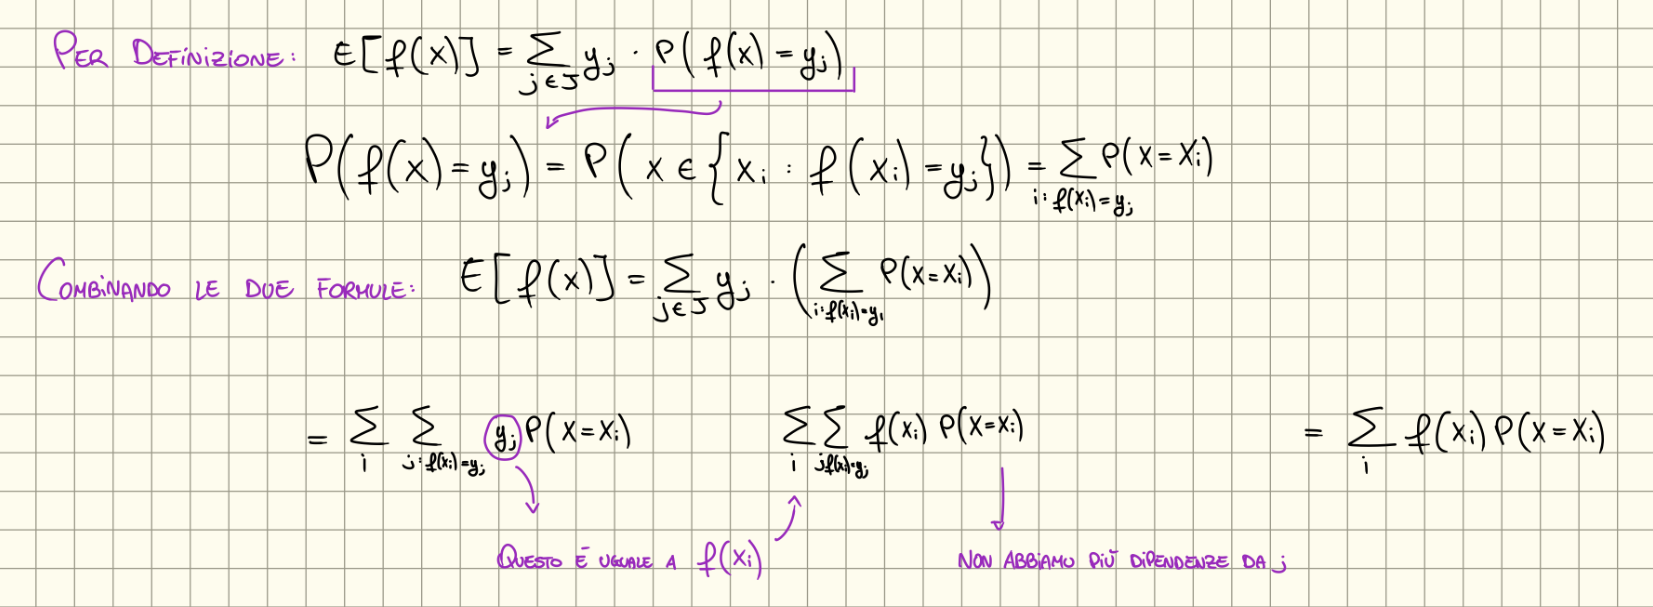 PER DEFINIZIONE: E[f(x)] = ∑_{j∈J} y_j · P(f(x) = y_j)
P(f(x) = y_j) = P(x ∈ {x_i : f(x_i) = y_j}) = ∑_{i: f(x_i) = y_j} P(x = x_i)
COMBINANDO LE DUE FORMULE: E[f(x)] = ∑_{j∈J} y_j · (∑_{i: f(x_i) = y_i} P(x = x_i))
= ∑_i ∑_{j: f(x_i) = y_j} y_j P(x = x_i) ∑_i ∑_{j f(x_i) = y_j} f(x_i) P(x = x_i) = ∑_i f(x_i) P(x = x_i)
QUESTO È UGUALE A f(x_i) NON ABBIAMO PIÙ DIPENDENZE DA j